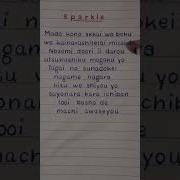 Sparkle
Mada kono sekai wa boku
wo kainarashitetai mitai da
Nozomi doori ii darou
utsukushiku mogaku yo
Tagai no sunadokei
nagame nagara
kisu wo shiyou yo
sayonara kara ichiban
tooi basho de
machi awaseyou